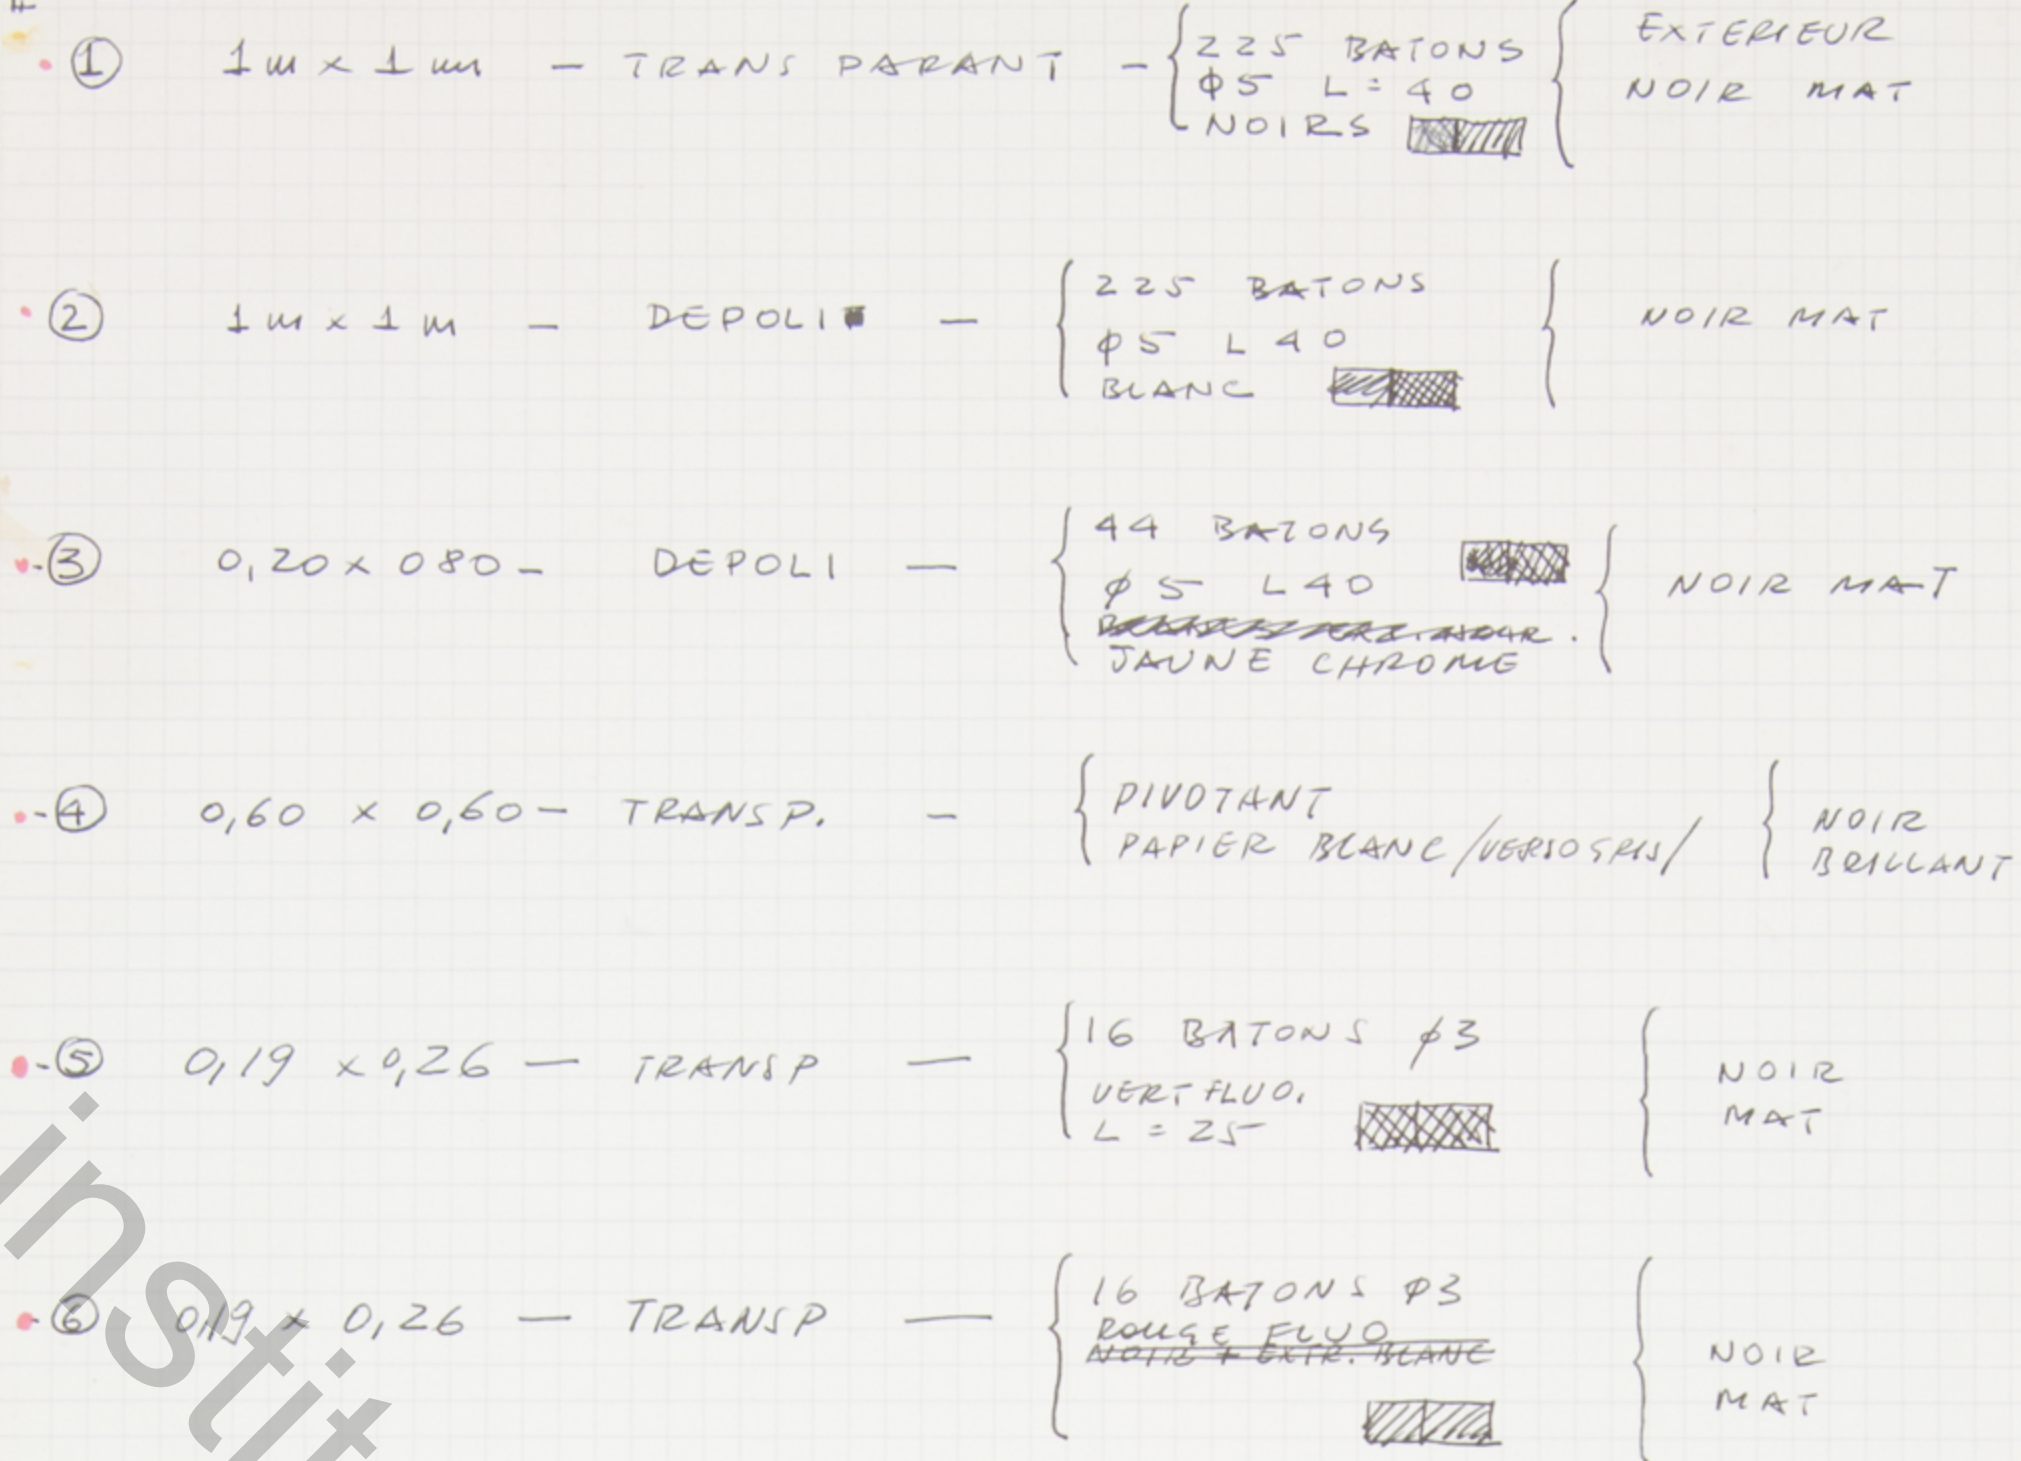 ① 1m x 1m — TRANSPARANT — 225 BATONS
φ5 L=40
NOIRS
EXTERIEUR
NOIR MAT
② 1m x 1m — DEPOLI — 225 BATONS
φ5 L40
BLANC
NOIR MAT
③ 0,20 x 080 — DEPOLI — 44 BATONS
φ5 L40
JAUNE CHROME
NOIR MAT
④ 0,60 x 0,60 — TRANSP. — PIVOTANT
PAPIER BLANC /VERSO GRIS/
NOIR
BRILLANT
⑤ 0,19 x 0,26 — TRANSP — 16 BATONS φ3
VERT FLUO.
L = 25
NOIR
MAT
⑥ 0,19 x 0,26 — TRANSP — 16 BATONS φ3
ROUGE FLUO
NOIR + EXTR. BLANC
NOIR
MAT
instit